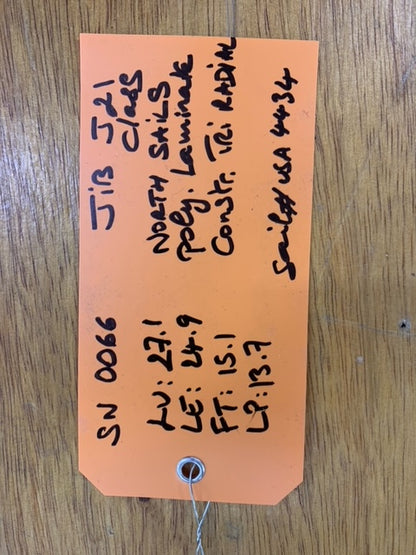 SN 0066
JiB J21
Class
LU: 27.1
NORTH SAilS
LE: 24.9
Poly. Laminate
FT: 15.1
Constr. TRi RADiAL
LP: 13.7
Sail# USA 4434